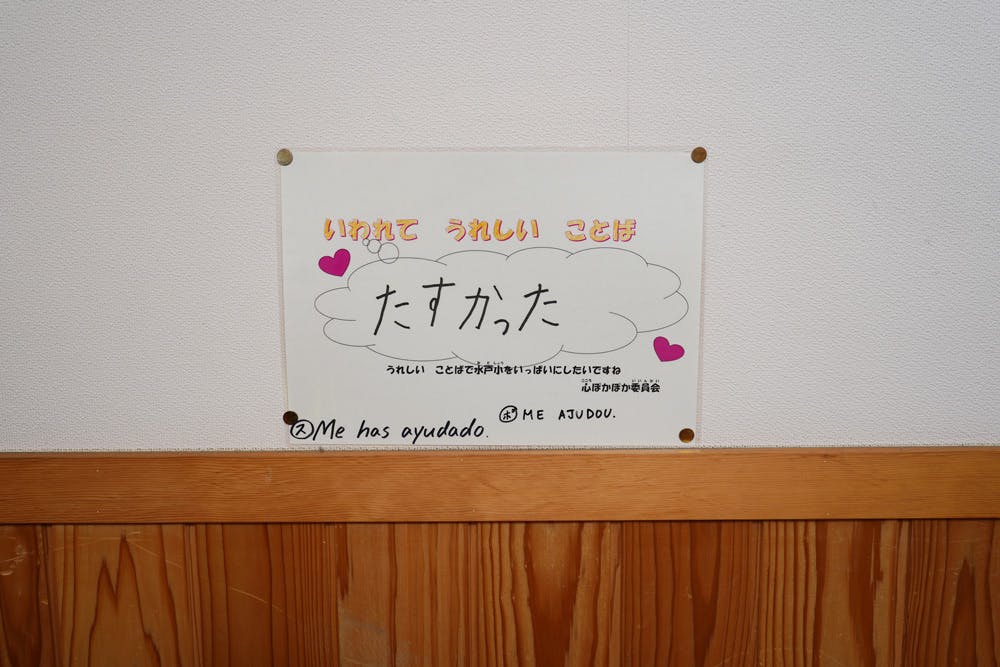 いわれて うれしい ことば
たすかった
うれしい ことばで水戸小をいっぱいにしたいですね
心ぽかぽか委員会
ポ ME AJUDOU.
ス Me has ayudado.